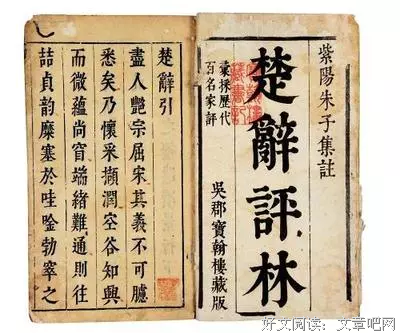 紫陽朱子集註
楚辭評林
彙採歷代
百名家評
吳郡寶翰樓藏版
楚辭引
盡人艷宗屈宋其義不可臆
悉矣乃懷采擷潤空谷知興
而微蘊尚窅端緒難通則往
喆貞韵糜塞於哇唫勃窣之
好文阅读：文章吧网